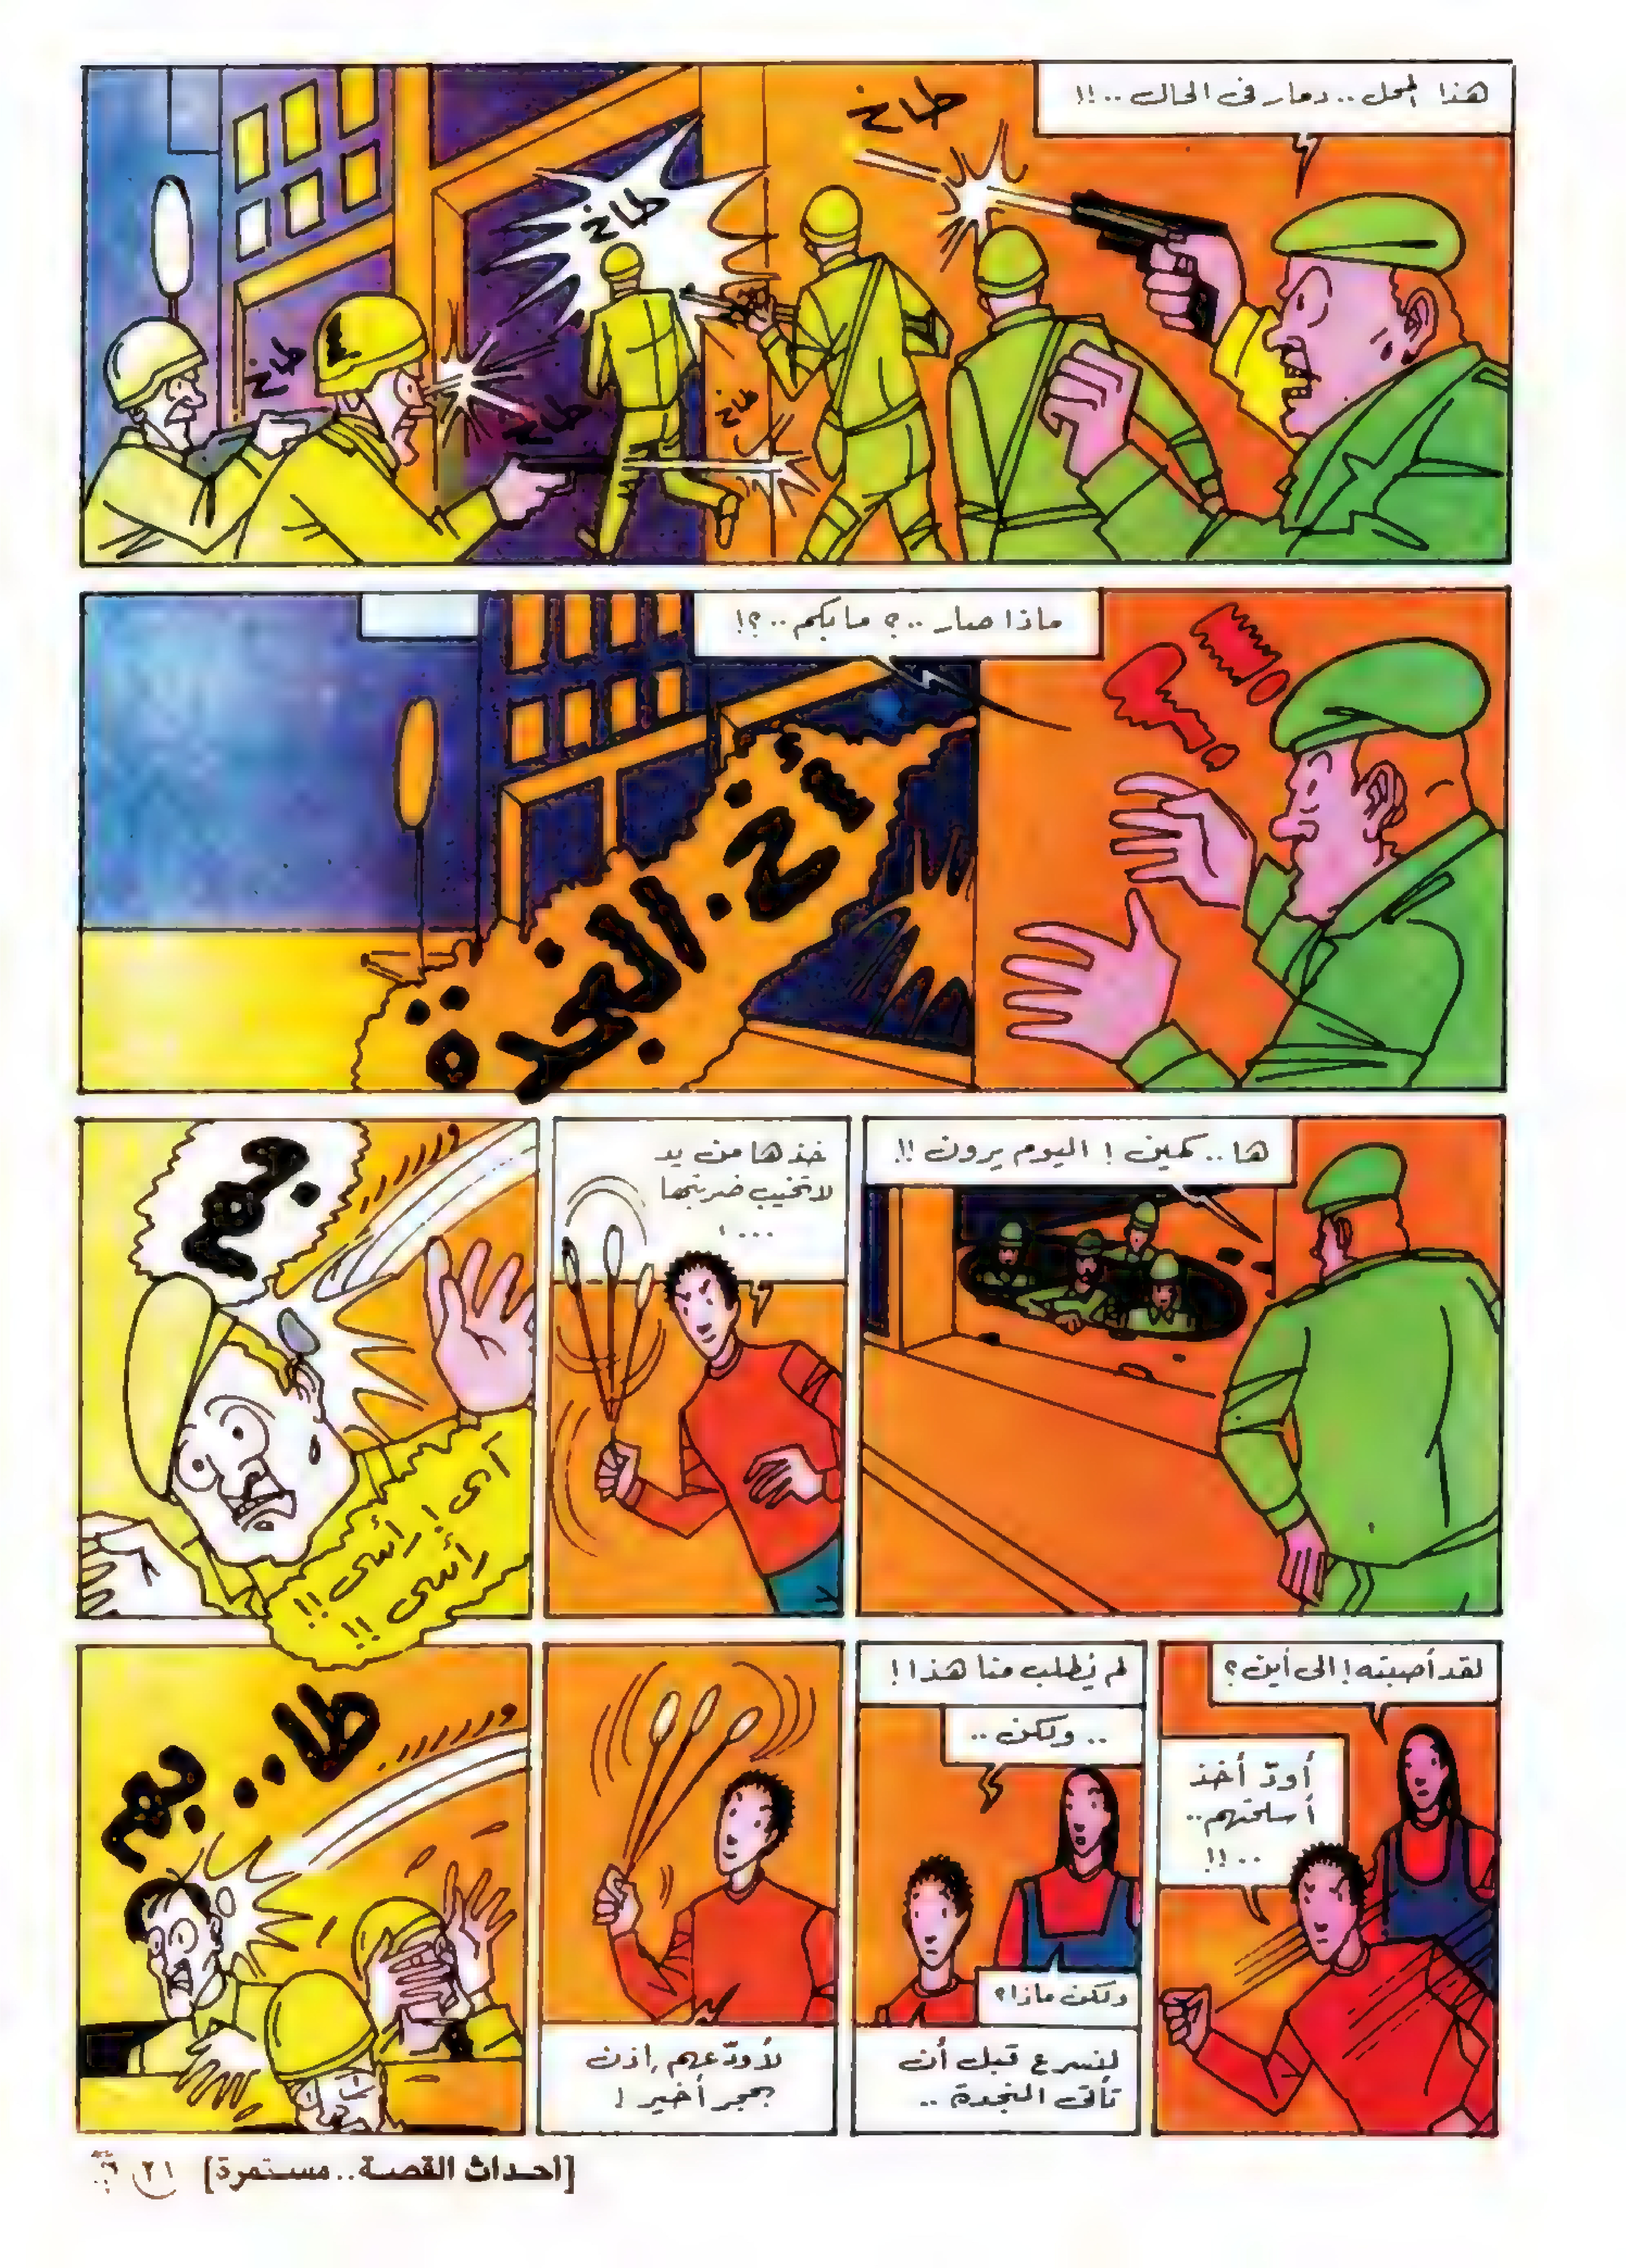 هذا المحل.. دمار في الحال..!!
طاخ
طاخ
طاخ
طاخ
طاخ
ماذا صار..؟ ما بكم..؟!
أخ. النجدة
ها.. كمين! اليوم يرون!!
خذها من يد
لا تخيب ضربتها
...!
بم
آي! رأسي!!
رأسي!!
لقد أصبته! إلى أين؟
أودّ أخذ
أسلحتهم..
..!!
لم يُطلب منا هذا!
.. ولكن ..
ولكن ماذا؟
لنسرع قبل أن
تأتي النجدة ..
لأودّعهم إذن
بحجر أخير!
طا.. بم
[أحداث القصة.. مستمرة]
٢١